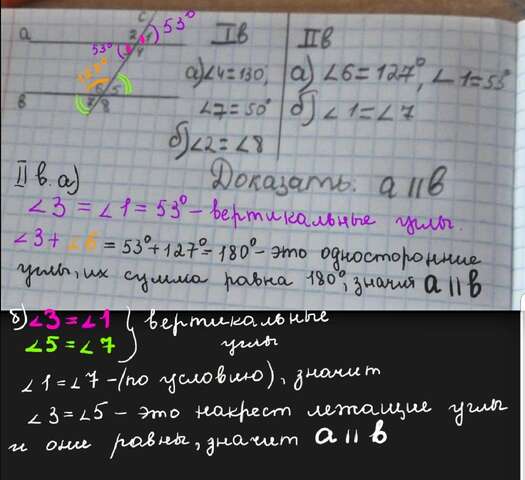 a
b
c
2 1
3 4
6 5
7 8
53°
53°
127°
I в
а) ∠4=130,
∠7=50°
б) ∠2=∠8
II в
а) ∠6=127°, ∠1=53°
б) ∠1=∠7
Доказать: a || b
II в. а)
∠3 = ∠1 = 53° - вертикальные углы.
∠3 + ∠6 = 53°+127°= 180° - это односторонние
углы, их сумма равна 180°, значит a || b
б) ∠3 = ∠1 } вертикальные
∠5 = ∠7 } углы
∠1 = ∠7 - (по условию), значит
∠3 = ∠5 - это накрест лежащие углы
и они равны, значит a || b